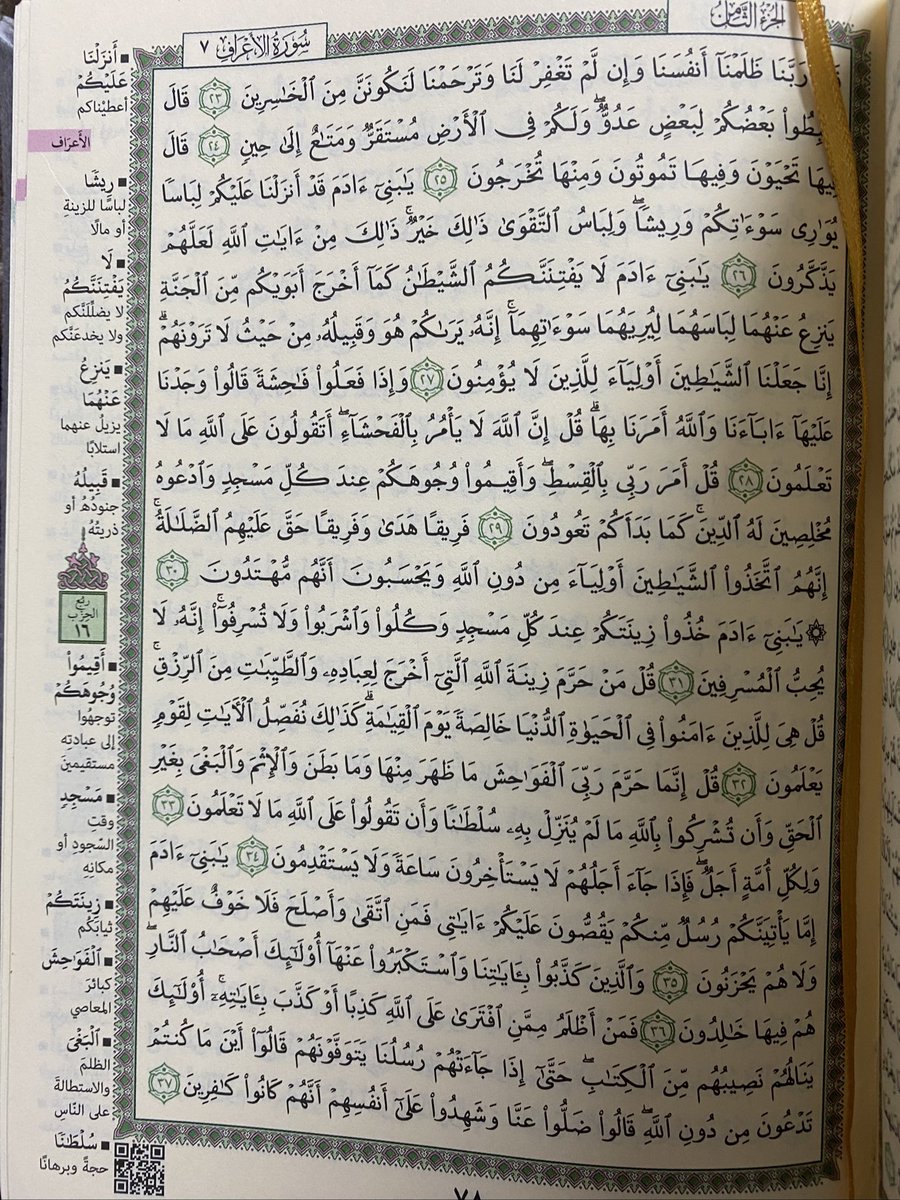 الجزء الثامن
سورة الأعراف ٧
رَبَّنَا ظَلَمْنَآ أَنفُسَنَا وَإِن لَّمْ تَغْفِرْ لَنَا وَتَرْحَمْنَا لَنَكُونَنَّ مِنَ ٱلْخَٰسِرِينَ ٢٣ قَالَ
بَعْضُكُمْ لِبَعْضٍ عَدُوٌّ ۖ وَلَكُمْ فِى ٱلْأَرْضِ مُسْتَقَرٌّ وَمَتَٰعٌ إِلَىٰ حِينٍ ٢٤ قَالَ
فِيهَا تَحْيَوْنَ وَفِيهَا تَمُوتُونَ وَمِنْهَا تُخْرَجُونَ ٢٥ يَٰبَنِىٓ ءَادَمَ قَدْ أَنزَلْنَا عَلَيْكُمْ لِبَاسًا
يُوَٰرِى سَوْءَٰتِكُمْ وَرِيشًا ۖ وَلِبَاسُ ٱلتَّقْوَىٰ ذَٰلِكَ خَيْرٌ ۚ ذَٰلِكَ مِنْ ءَايَٰتِ ٱللَّهِ لَعَلَّهُمْ
يَذَّكَّرُونَ ٢٦ يَٰبَنِىٓ ءَادَمَ لَا يَفْتِنَنَّكُمُ ٱلشَّيْطَٰنُ كَمَآ أَخْرَجَ أَبَوَيْكُم مِّنَ ٱلْجَنَّةِ
يَنزِعُ عَنْهُمَا لِبَاسَهُمَا لِيُرِيَهُمَا سَوْءَٰتِهِمَآ ۗ إِنَّهُۥ يَرَىٰكُمْ هُوَ وَقَبِيلُهُۥ مِنْ حَيْثُ لَا تَرَوْنَهُمْ ۗ
إِنَّا جَعَلْنَا ٱلشَّيَٰطِينَ أَوْلِيَآءَ لِلَّذِينَ لَا يُؤْمِنُونَ ٢٧ وَإِذَا فَعَلُوا۟ فَٰحِشَةً قَالُوا۟ وَجَدْنَا
عَلَيْهَآ ءَابَآءَنَا وَٱللَّهُ أَمَرَنَا بِهَا ۗ قُلْ إِنَّ ٱللَّهَ لَا يَأْمُرُ بِٱلْفَحْشَآءِ ۖ أَتَقُولُونَ عَلَى ٱللَّهِ مَا لَا
تَعْلَمُونَ ٢٨ قُلْ أَمَرَ رَبِّى بِٱلْقِسْطِ ۖ وَأَقِيمُوا۟ وُجُوهَكُمْ عِندَ كُلِّ مَسْجِدٍ وَٱدْعُوهُ
مُخْلِصِينَ لَهُ ٱلدِّينَ ۚ كَمَا بَدَأَكُمْ تَعُودُونَ ٢٩ فَرِيقًا هَدَىٰ وَفَرِيقًا حَقَّ عَلَيْهِمُ ٱلضَّلَٰلَةُ ۗ
إِنَّهُمُ ٱتَّخَذُوا۟ ٱلشَّيَٰطِينَ أَوْلِيَآءَ مِن دُونِ ٱللَّهِ وَيَحْسَبُونَ أَنَّهُم مُّهْتَدُونَ ٣٠
۞ يَٰبَنِىٓ ءَادَمَ خُذُوا۟ زِينَتَكُمْ عِندَ كُلِّ مَسْجِدٍ وَكُلُوا۟ وَٱشْرَبُوا۟ وَلَا تُسْرِفُوٓا۟ ۚ إِنَّهُۥ لَا
يُحِبُّ ٱلْمُسْرِفِينَ ٣١ قُلْ مَنْ حَرَّمَ زِينَةَ ٱللَّهِ ٱلَّتِىٓ أَخْرَجَ لِعِبَادِهِۦ وَٱلطَّيِّبَٰتِ مِنَ ٱلرِّزْقِ ۚ
قُلْ هِىَ لِلَّذِينَ ءَامَنُوا۟ فِى ٱلْحَيَوٰةِ ٱلدُّنْيَا خَالِصَةً يَوْمَ ٱلْقِيَٰمَةِ ۗ كَذَٰلِكَ نُفَصِّلُ ٱلْءَايَٰتِ لِقَوْمٍ
يَعْلَمُونَ ٣٢ قُلْ إِنَّمَا حَرَّمَ رَبِّىَ ٱلْفَوَٰحِشَ مَا ظَهَرَ مِنْهَا وَمَا بَطَنَ وَٱلْإِثْمَ وَٱلْبَغْىَ بِغَيْرِ
ٱلْحَقِّ وَأَن تُشْرِكُوا۟ بِٱللَّهِ مَا لَمْ يُنَزِّلْ بِهِۦ سُلْطَٰنًا وَأَن تَقُولُوا۟ عَلَى ٱللَّهِ مَا لَا تَعْلَمُونَ ٣٣
وَلِكُلِّ أُمَّةٍ أَجَلٌ ۖ فَإِذَا جَآءَ أَجَلُهُمْ لَا يَسْتَأْخِرُونَ سَاعَةً وَلَا يَسْتَقْدِمُونَ ٣٤ يَٰبَنِىٓ ءَادَمَ
إِمَّا يَأْتِيَنَّكُمْ رُسُلٌ مِّنكُمْ يَقُصُّونَ عَلَيْكُمْ ءَايَٰتِى فَمَنِ ٱتَّقَىٰ وَأَصْلَحَ فَلَا خَوْفٌ عَلَيْهِمْ
وَلَا هُمْ يَحْزَنُونَ ٣٥ وَٱلَّذِينَ كَذَّبُوا۟ بِـَٔايَٰتِنَا وَٱسْتَكْبَرُوا۟ عَنْهَآ أُو۟لَٰٓئِكَ أَصْحَٰبُ ٱلنَّارِ ۖ
هُمْ فِيهَا خَٰلِدُونَ ٣٦ فَمَنْ أَظْلَمُ مِمَّنِ ٱفْتَرَىٰ عَلَى ٱللَّهِ كَذِبًا أَوْ كَذَّبَ بِـَٔايَٰتِهِۦٓ ۚ أُو۟لَٰٓئِكَ
يَنَالُهُمْ نَصِيبُهُم مِّنَ ٱلْكِتَٰبِ ۖ حَتَّىٰٓ إِذَا جَآءَتْهُمْ رُسُلُنَا يَتَوَفَّوْنَهُمْ قَالُوٓا۟ أَيْنَ مَا كُنتُمْ
تَدْعُونَ مِن دُونِ ٱللَّهِ ۖ قَالُوا۟ ضَلُّوا۟ عَنَّا وَشَهِدُوا۟ عَلَىٰٓ أَنفُسِهِمْ أَنَّهُمْ كَانُوا۟ كَٰفِرِينَ ٣٧
أَنزَلْنَا
عَلَيْكُمْ
أعطيْناكم
الأعراف
رِيشًا
لباسًا للزينةِ
أو مالًا
لَا
يَفْتِنَنَّكُمُ
لا يضلّلَنَّكم
ولا يخدعَنَّكم
يَنزِعُ
عَنْهُمَا
يزيلُ عنهما
استلابًا
قَبِيلُهُ
جنودُهُ أو
ذريتُهُ
ربع
الحزب
١٦
أَقِيمُوا۟
وُجُوهَكُمْ
توجهُوا
إلى عبادته
مستقيمين
مَسْجِدٍ
وقتِ
السّجودِ أو
مكانِهِ
زِينَتَكُمْ
ثيابَكُم
ٱلْفَوَٰحِشَ
كبائرَ
المعاصي
ٱلْبَغْىَ
الظلمَ
والاستطالةَ
على النّاسِ
سُلْطَٰنًا
حجةً وبرهانًا